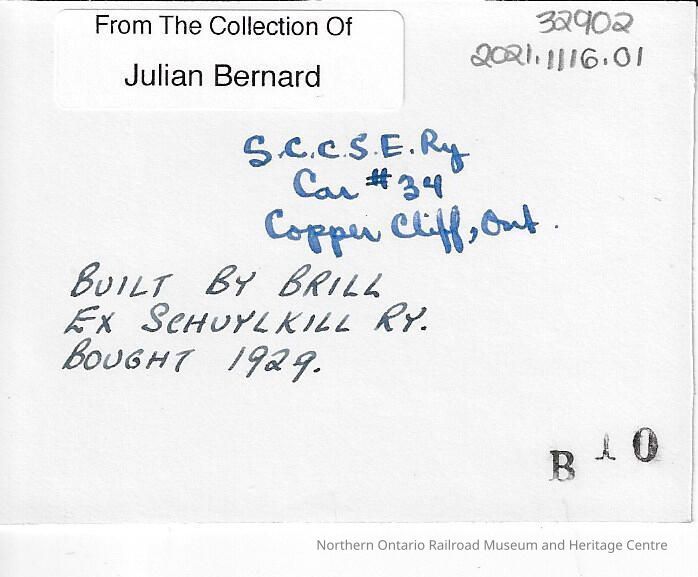 From The Collection Of
Julian Bernard
32902
2021.1116.01
S.C.C.S.E.Ry
Car #34
Copper Cliff, Ont.
BUILT BY BRILL
EX SCHUYLKILL RY.
BOUGHT 1929.
B 1 0
Northern Ontario Railroad Museum and Heritage Centre